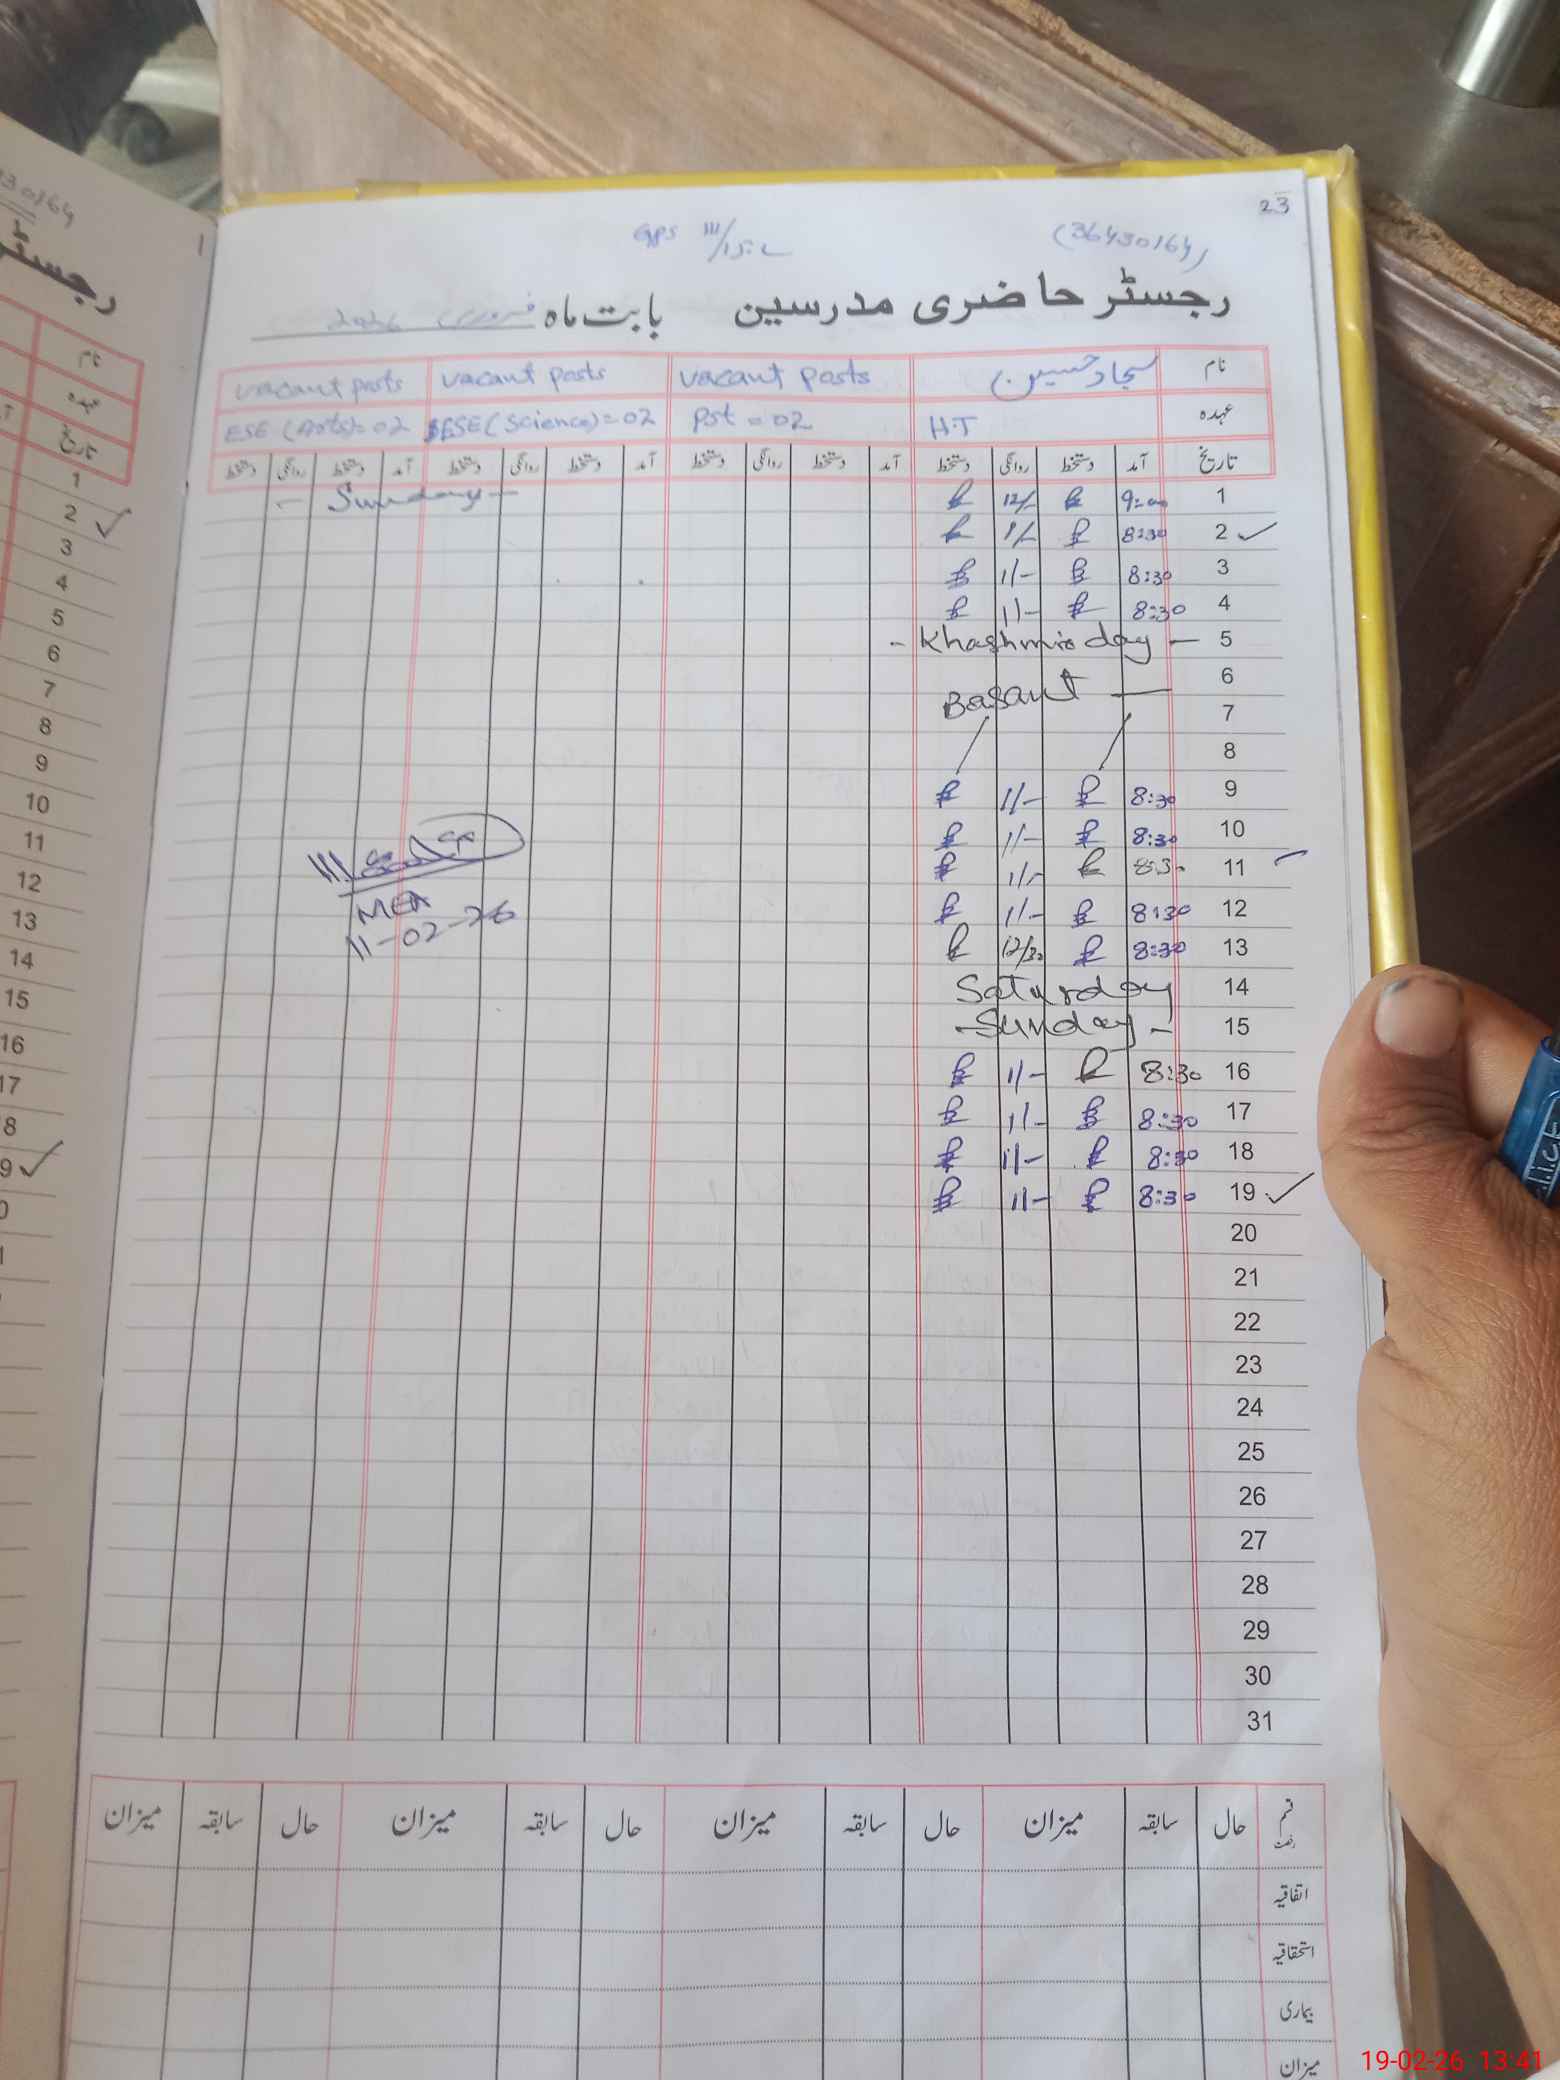 23
GPS 111/15-L (36430164)
رجسٹر حاضری مدرسین بابت ماہ فروری 2026
نام سجاد حسین vacant posts vacant posts vacant posts
عہدہ H.T Pst = 02 ESE (Science) = 02 ESE (Arts) = 02
تاریخ آمد دستخط روانگی دستخط آمد دستخط روانگی دستخط آمد دستخط روانگی دستخط آمد دستخط روانگی دستخط
1 9:00 12/- - Sunday -
2 8:30 1/-
3 8:30 1/-
4 8:30 1/-
5 - Khashmir day -
6 Basant
7
8
9 8:30 1/-
10 8:30 1/-
11 8:30 1/-
12 8:30 1/-
13 8:30 12/30
14 Saturday
15 - Sunday -
16 8:30 1/-
17 8:30 1/-
18 8:30 1/-
19 8:30 1/-
20
21
22
23
24
25
26
27
28
29
30
31
MEA
11-02-26
قسم رخصت حال سابقہ میزان حال سابقہ میزان حال سابقہ میزان حال سابقہ میزان
اتفاقیہ
استحقاقیہ
بیماری
میزان
30164
رجسٹر
نام
عہدہ
تاریخ
1
2
3
4
5
6
7
8
9
10
11
12
13
14
15
16
17
8
9
0
19-02-26 13:41